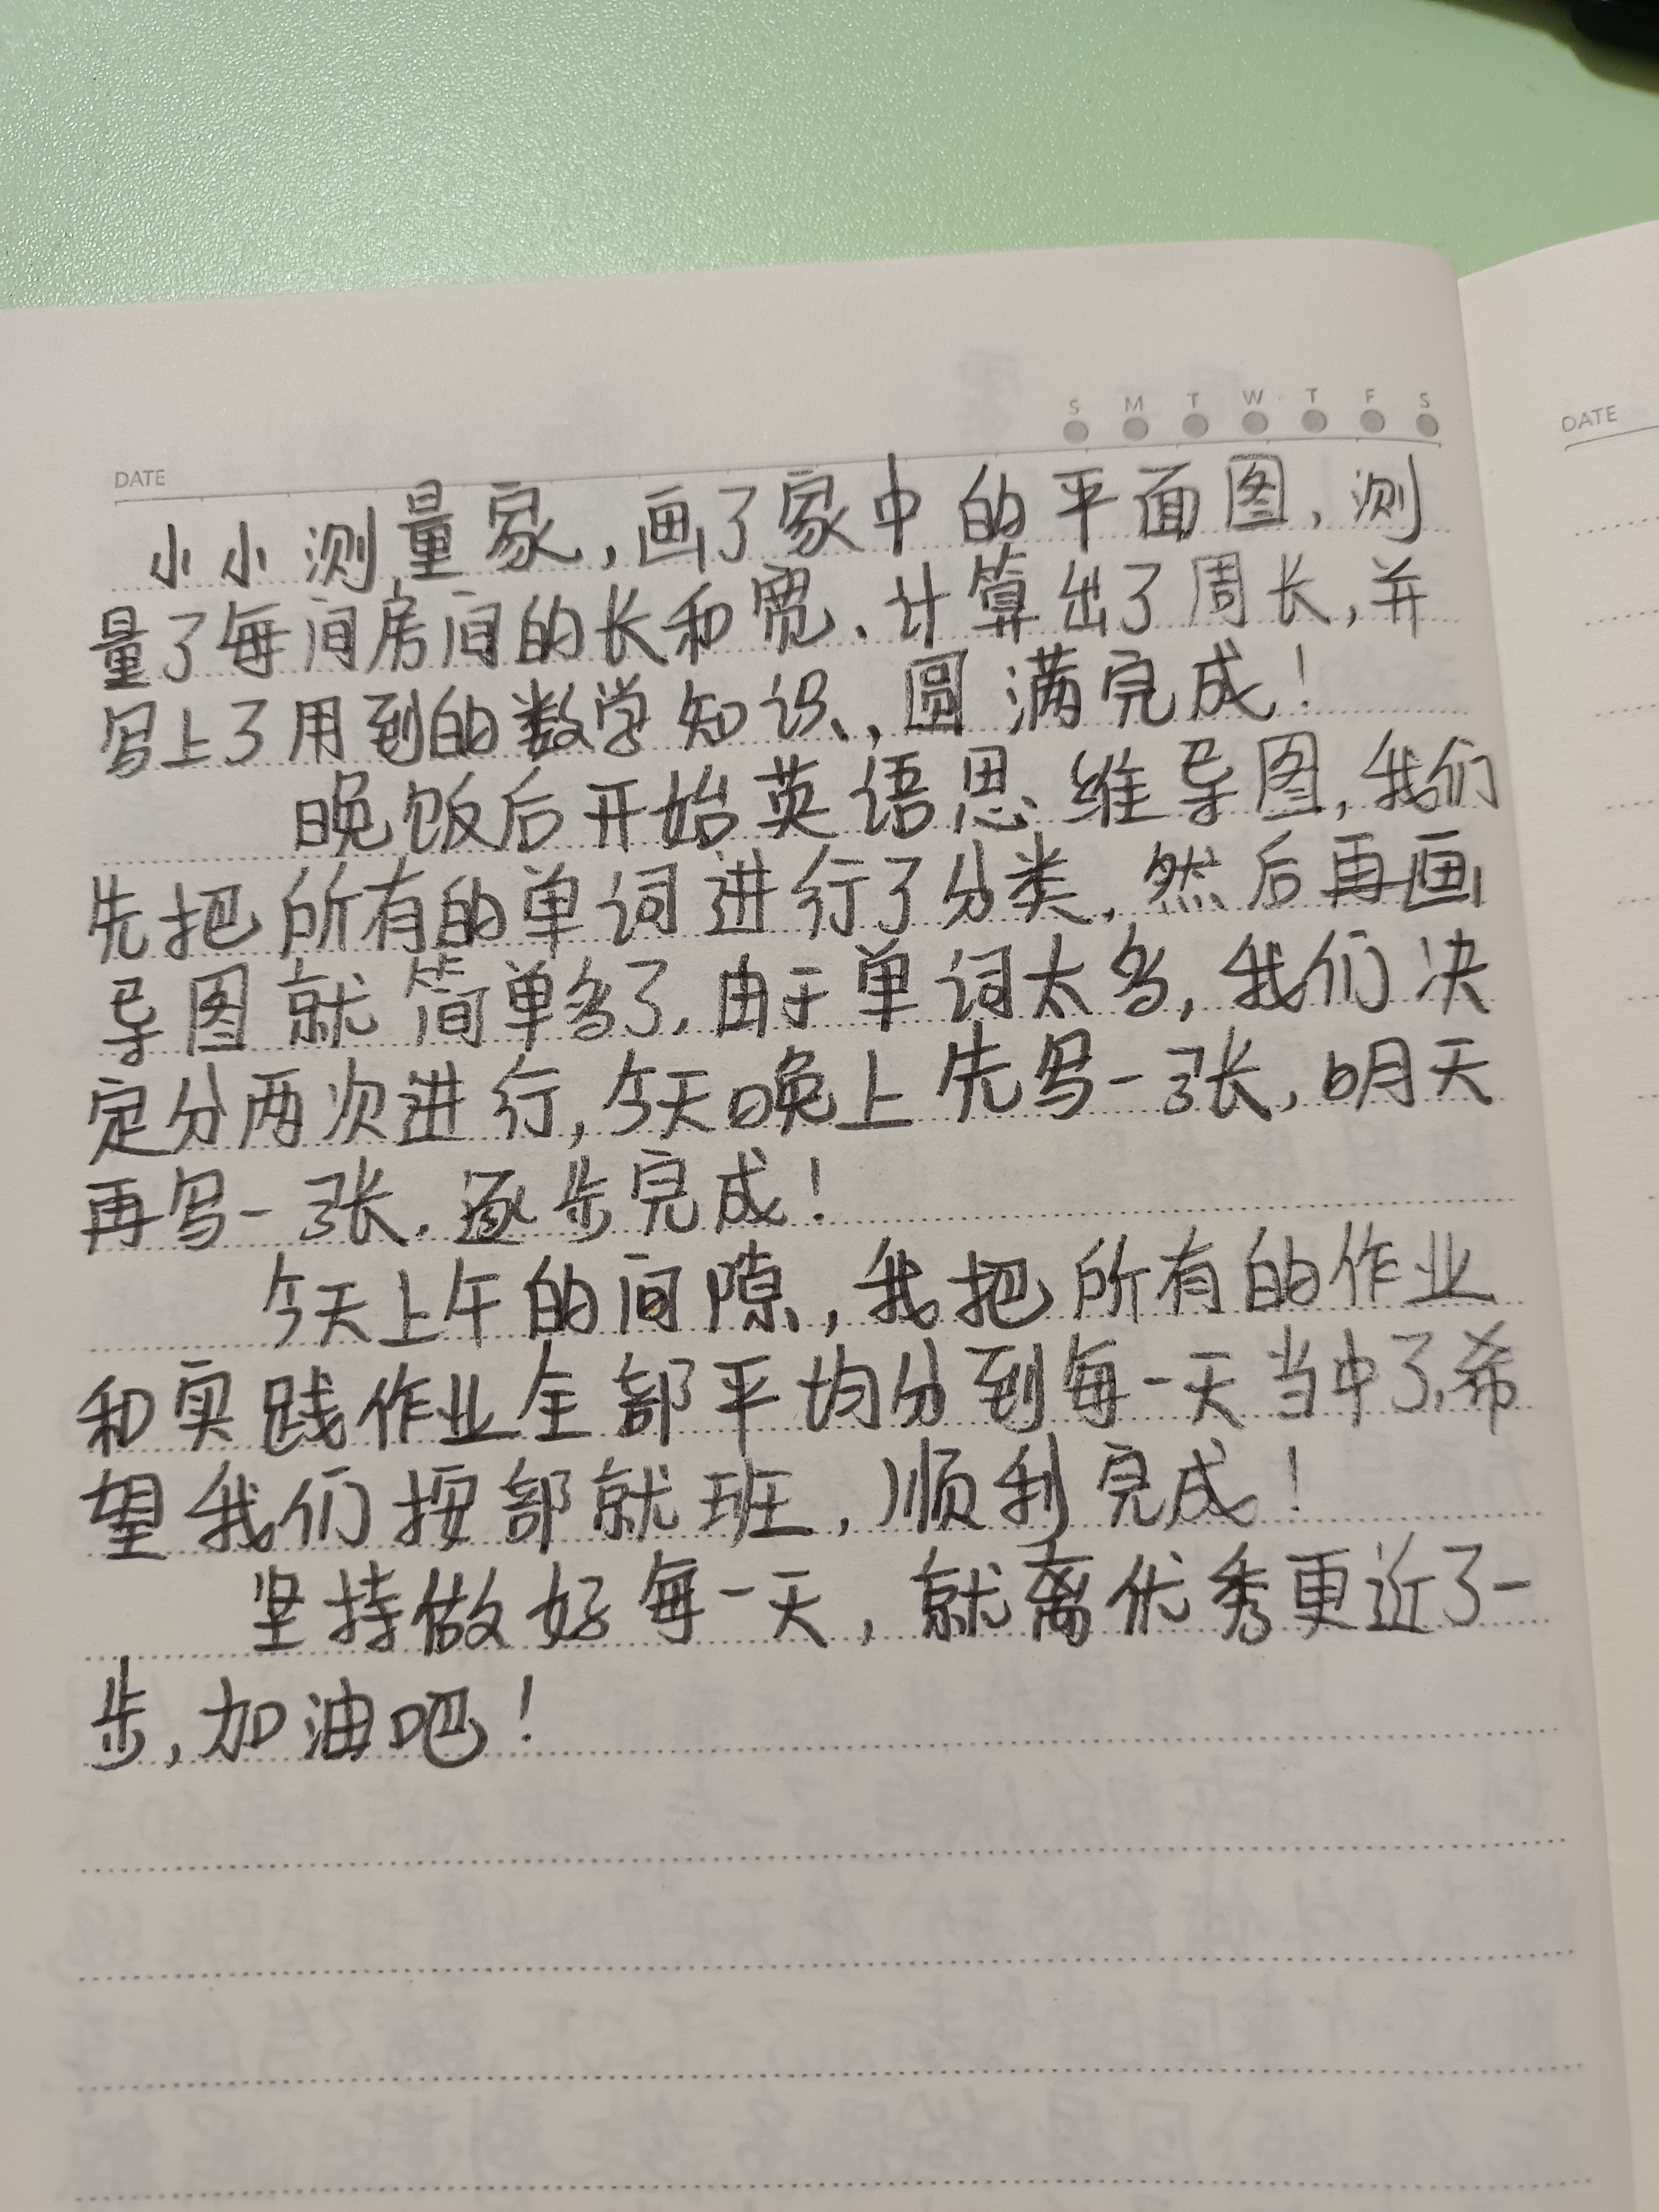 S M T W T F S
DATE
DATE
小小测量家,画了家中的平面图,测
量了每间房间的长和宽、计算出了周长,并
写上了用到的数学知识,圆满完成!
晚饭后开始英语思维导图,我们
先把所有的单词进行了分类,然后再画
导图就简单多了.由于单词太多,我们决
定分两次进行,今天晚上先写一张,明天
再写一张.逐步完成!
今天上午的间隙,我把所有的作业
和实践作业全部平均分到每一天当中了,希
望我们按部就班,顺利完成!
坚持做好每一天,就离优秀更近了一
步,加油吧!